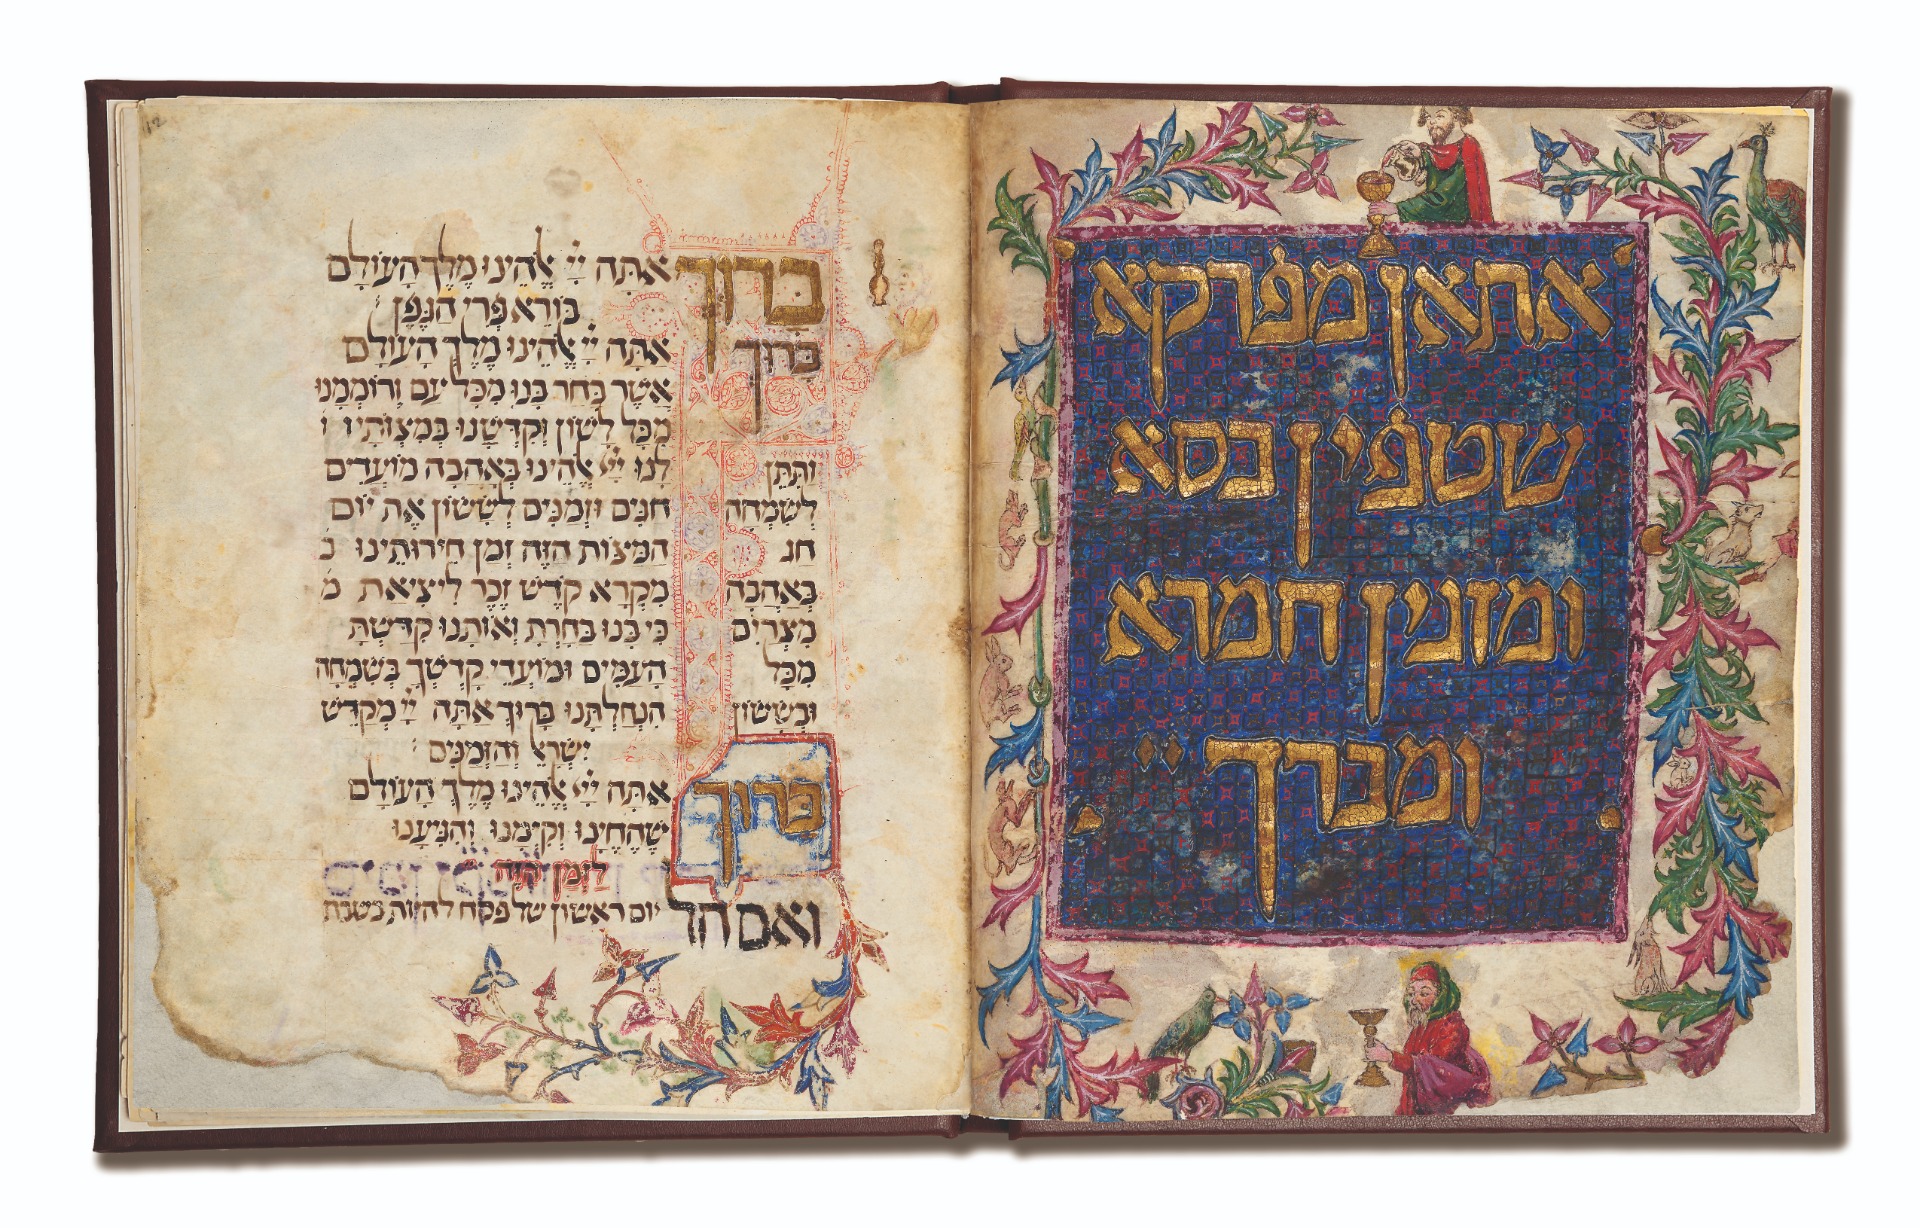 אתאן מפרקא
שטפין כסא
ומזגין חמרא
ומברך
בָּרוּךְ אַתָּה יְיָ אֱלֹהֵינוּ מֶלֶךְ הָעוֹלָם
בּוֹרֵא פְּרִי הַגֶּפֶן
בָּרוּךְ אַתָּה יְיָ אֱלֹהֵינוּ מֶלֶךְ הָעוֹלָם
אֲשֶׁר בָּחַר בָּנוּ מִכָּל עַם וְרוֹמְמָנוּ
מִכָּל לָשׁוֹן וְקִדְּשָׁנוּ בְּמִצְוֹתָיו ו
וַתִּתֵּן לָנוּ יְיָ אֱלֹהֵינוּ בְּאַהֲבָה מוֹעֲדִים
לְשִׂמְחָה חגִּים וּזְמַנִּים לְשָׂשׂוֹן אֶת יוֹם
חַג הַמַּצּוֹת הַזֶּה זְמַן חֵירוּתֵינוּ ב
בְּאַהֲבָה מִקְרָא קֹדֶשׁ זֵכֶר לִיצִיאַת מ
מִצְרַיִם כִּי בָנוּ בָחַרְתָּ וְאוֹתָנוּ קִדַּשְׁתָּ
מִכָּל הָעַמִּים וּמוֹעֲדֵי קָדְשְׁךָ בְּשִׂמְחָה
וּבְשָׂשׂוֹן הִנְחַלְתָּנוּ בָּרוּךְ אַתָּה יְיָ מְקַדֵּשׁ
יִשְׂרָאֵל וְהַזְּמַנִּים
בָּרוּךְ אַתָּה יְיָ אֱלֹהֵינוּ מֶלֶךְ הָעוֹלָם
שֶׁהֶחֱינוּ וְקִיְּמָנוּ וְהִגִּיעָנוּ
לַזְּמַן הַזֶּה
ואם חל יום ראשון של פסח להיות בשבת